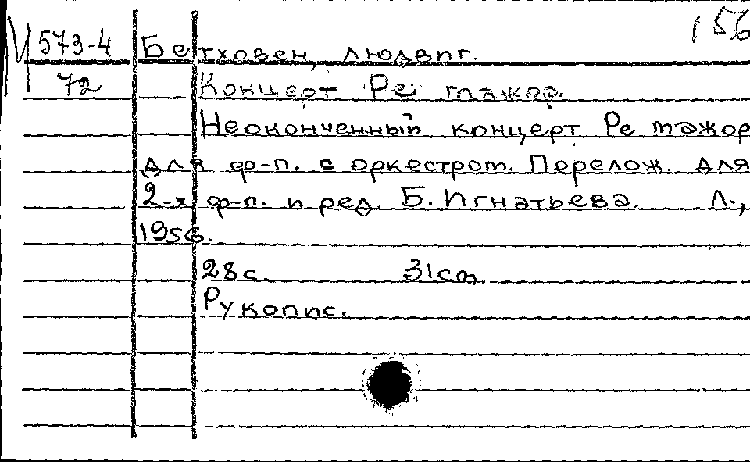 156
М 573-4 Бетховен, Людвиг.
72 Концерт Ре мажор.
Неоконченный концерт Ре мажор
для ф-п. с оркестром. Перелож. для
2-х ф-п. и ред. Б. Игнатьева. Л.,
1956.
28 с. 31 см
Рукопис.